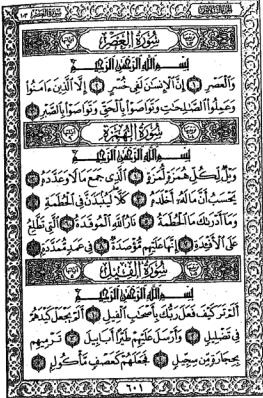 سُورَةُ العَصْرِ
بِسْمِ اللَّهِ الرَّحْمَٰنِ الرَّحِيمِ
وَالْعَصْرِ ۝ إِنَّ الْإِنسَانَ لَفِي خُسْرٍ ۝ إِلَّا الَّذِينَ ءَامَنُوا
وَعَمِلُوا الصَّالِحَاتِ وَتَوَاصَوْا بِالْحَقِّ وَتَوَاصَوْا بِالصَّبْرِ ۝
سُورَةُ الهُمَزَةِ
بِسْمِ اللَّهِ الرَّحْمَٰنِ الرَّحِيمِ
وَيْلٌ لِّكُلِّ هُمَزَةٍ لُّمَزَةٍ ۝ الَّذِي جَمَعَ مَالًا وَعَدَّدَهُ ۝
يَحْسَبُ أَنَّ مَالَهُ أَخْلَدَهُ ۝ كَلَّا لَيُنبَذَنَّ فِي الْحُطَمَةِ ۝
وَمَا أَدْرَاكَ مَا الْحُطَمَةُ ۝ نَارُ اللَّهِ الْمُوقَدَةُ ۝ الَّتِي تَطَّلِعُ
عَلَى الْأَفْئِدَةِ ۝ إِنَّهَا عَلَيْهِم مُّؤْصَدَةٌ ۝ فِي عَمَدٍ مُّمَدَّدَةٍ ۝
سُورَةُ الفِيلِ
بِسْمِ اللَّهِ الرَّحْمَٰنِ الرَّحِيمِ
أَلَمْ تَرَ كَيْفَ فَعَلَ رَبُّكَ بِأَصْحَابِ الْفِيلِ ۝ أَلَمْ يَجْعَلْ كَيْدَهُمْ
فِي تَضْلِيلٍ ۝ وَأَرْسَلَ عَلَيْهِمْ طَيْرًا أَبَابِيلَ ۝ تَرْمِيهِم
بِحِجَارَةٍ مِّن سِجِّيلٍ ۝ فَجَعَلَهُمْ كَعَصْفٍ مَّأْكُولٍ ۝
٦٠١